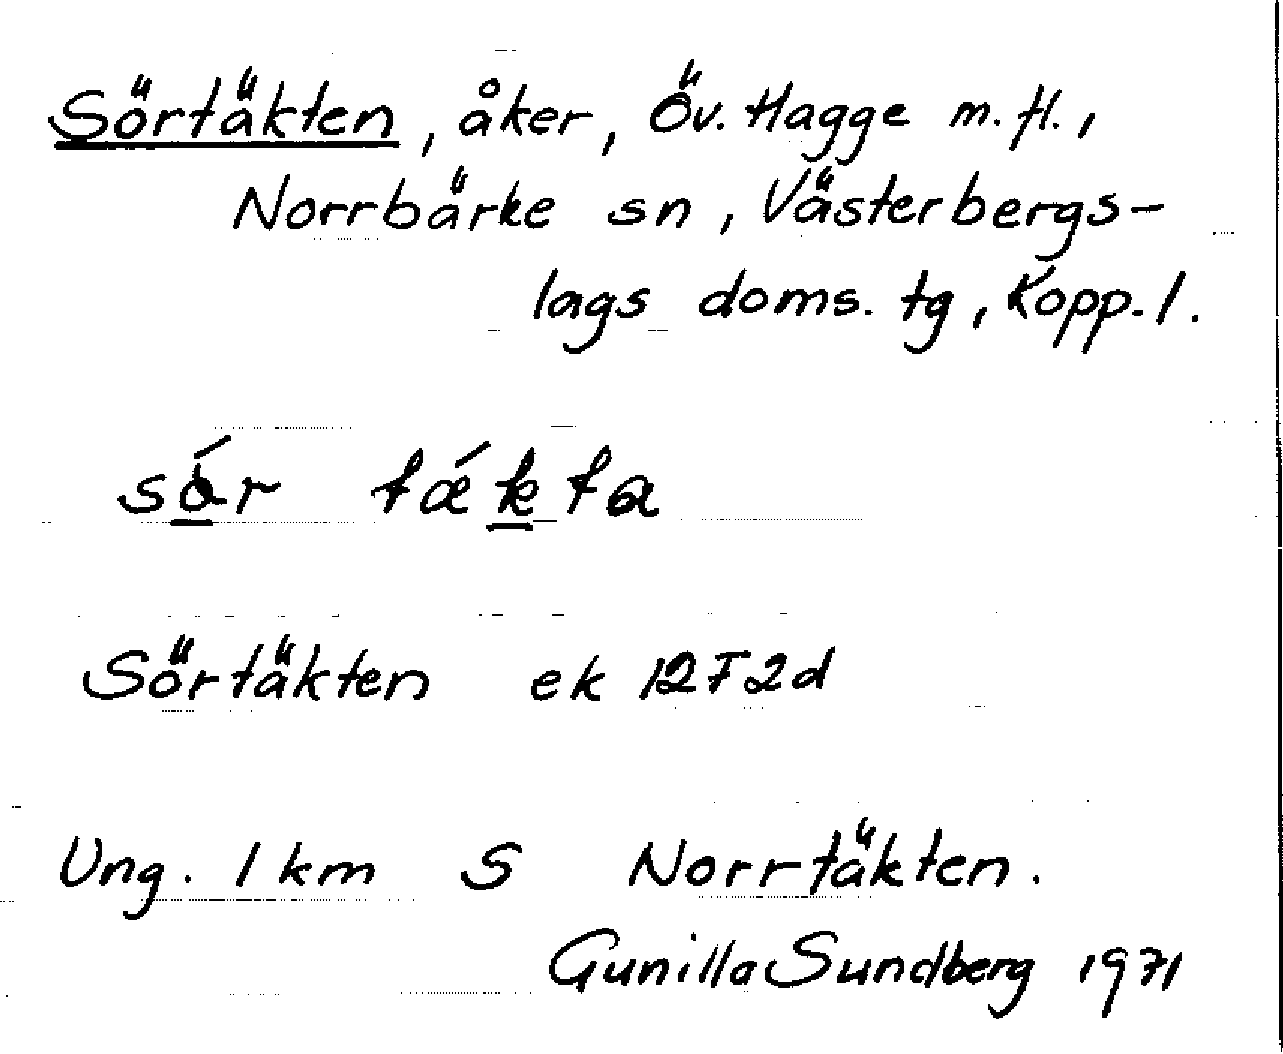 Sörtäkten, åker, Öv. Hagge m.fl.,
Norrbärke sn, Västerbergs-
lags doms. tg, Kopp. l.
sǿ̱r tǽḵta
Sörtäkten ek 12F2d
Ung. 1 km S Norrtäkten.
Gunilla Sundberg 1971